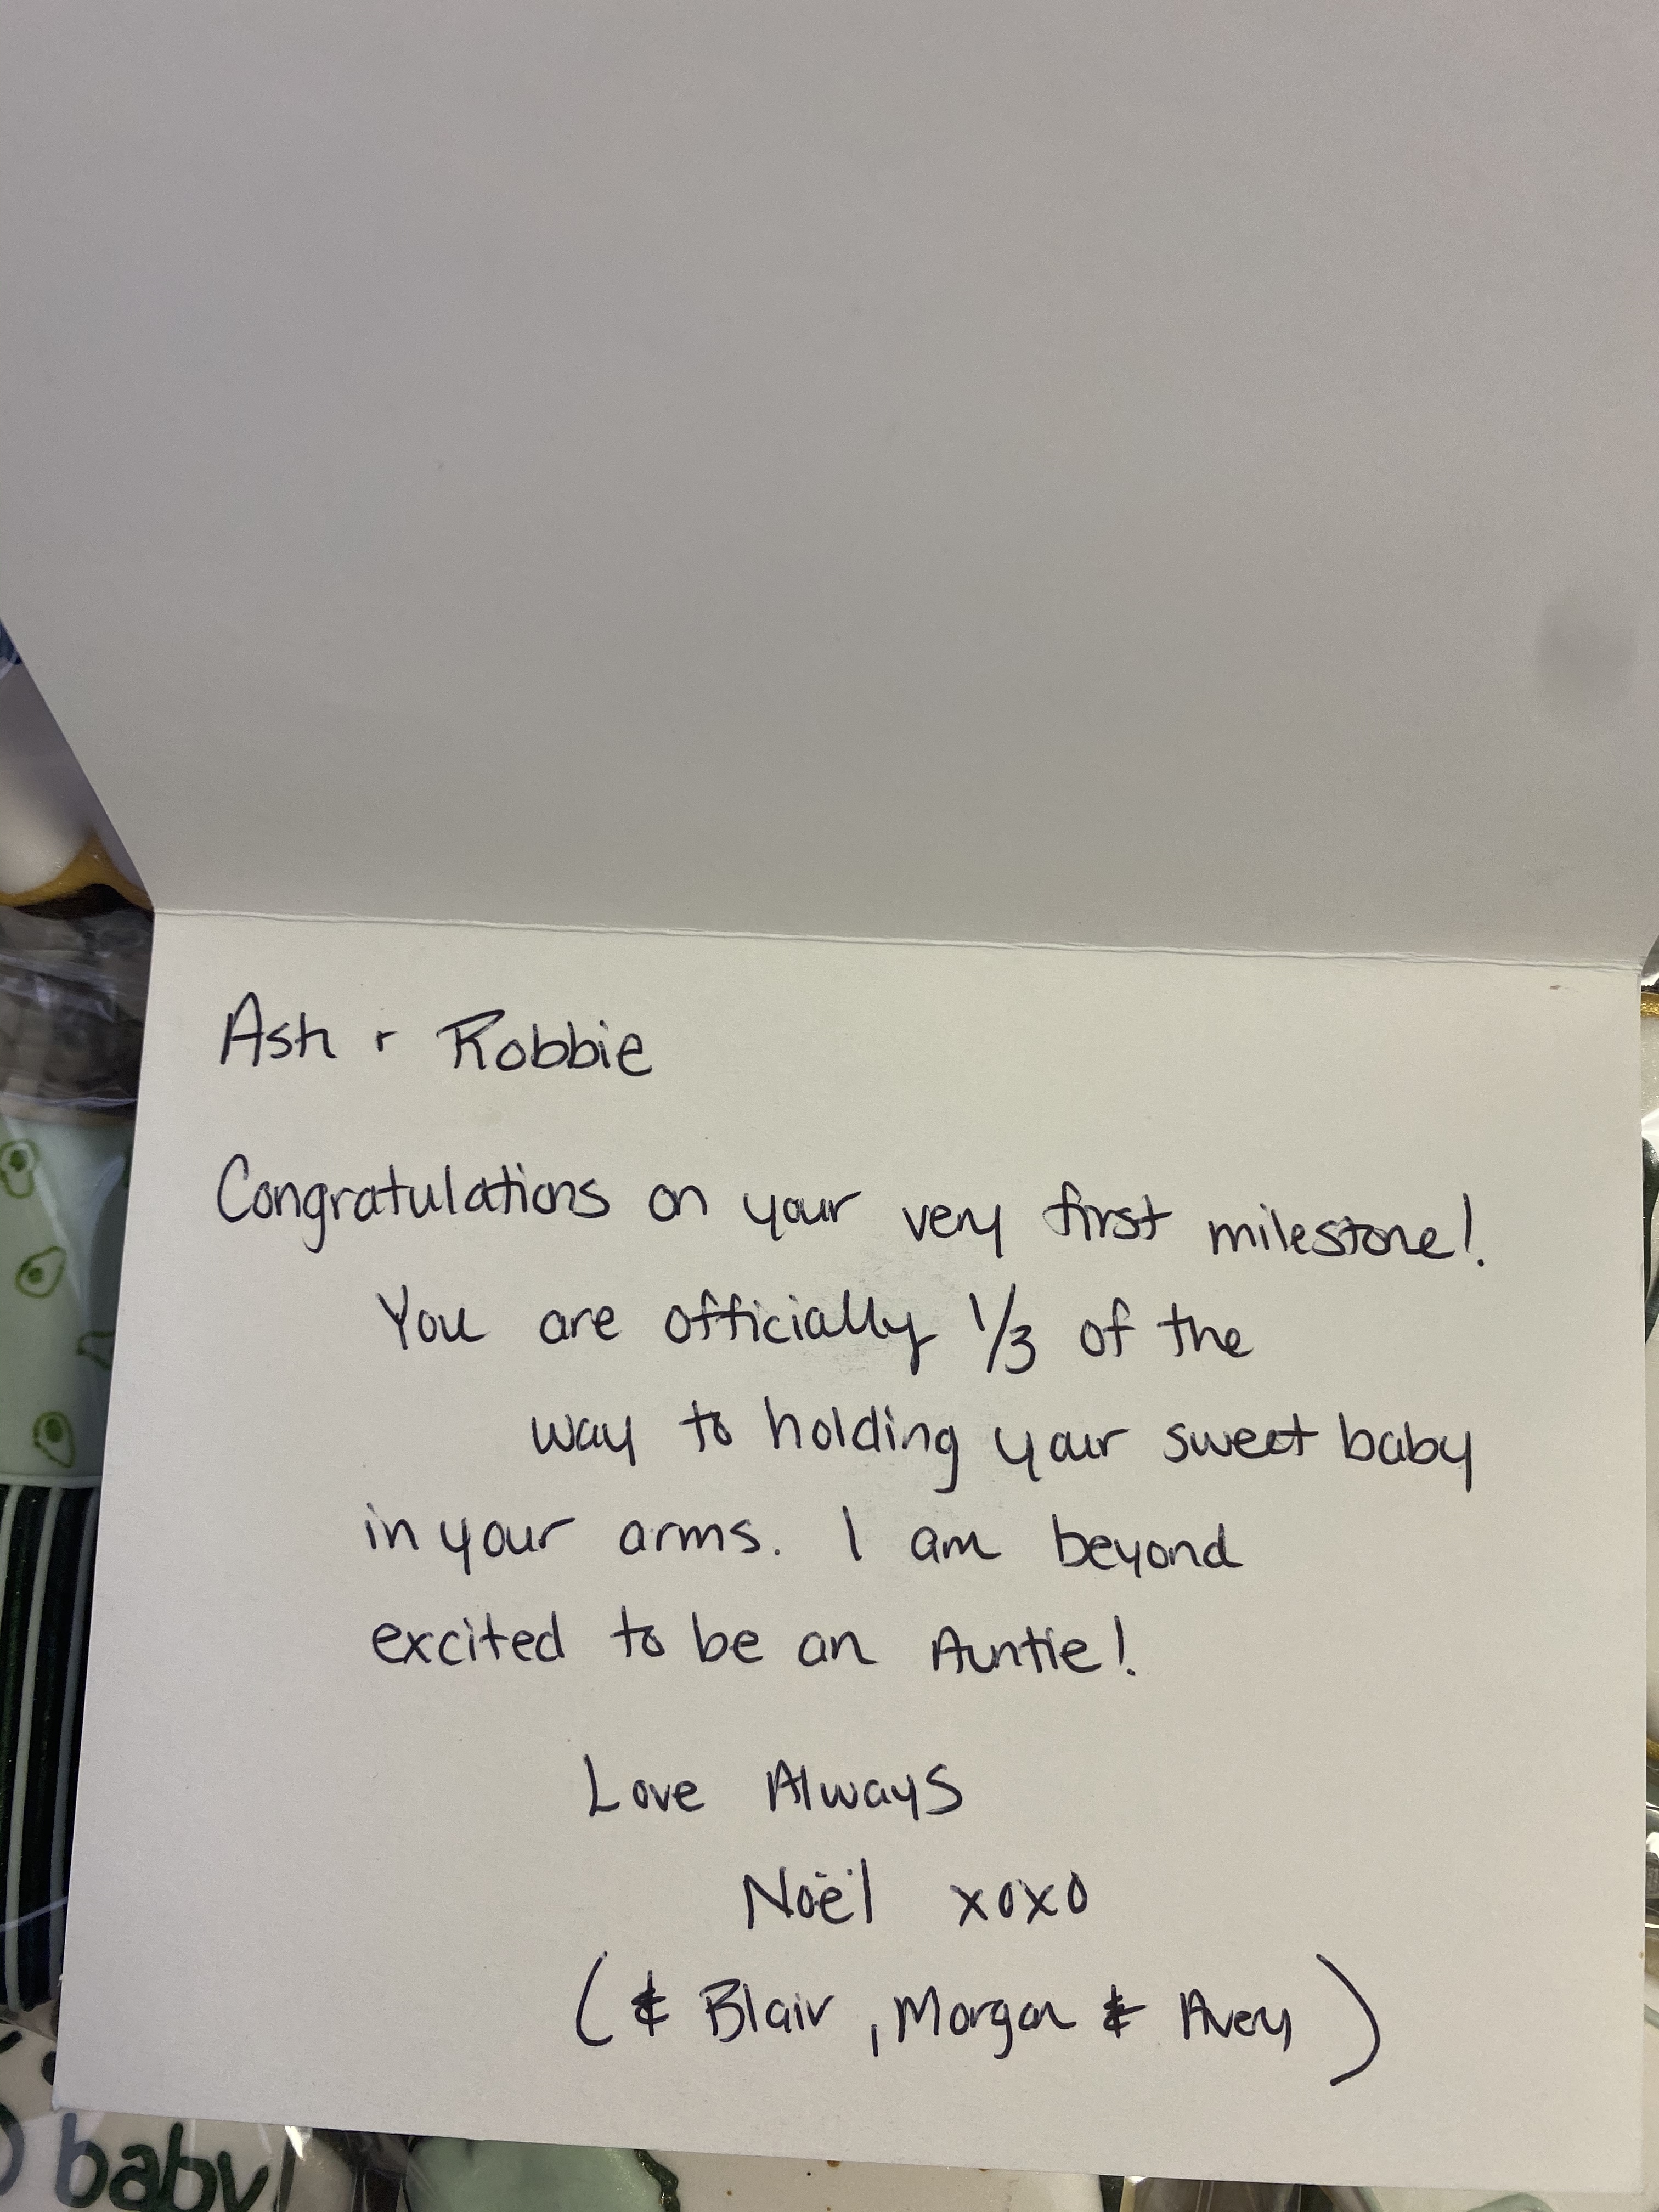 Ash + Robbie
Congratulations on your very first milestone!
You are officially 1/3 of the
way to holding your sweet baby
in your arms. I am beyond
excited to be an Auntie!
Love Always
Noël xoxo
(& Blair, Morgan & Avery)
baby!